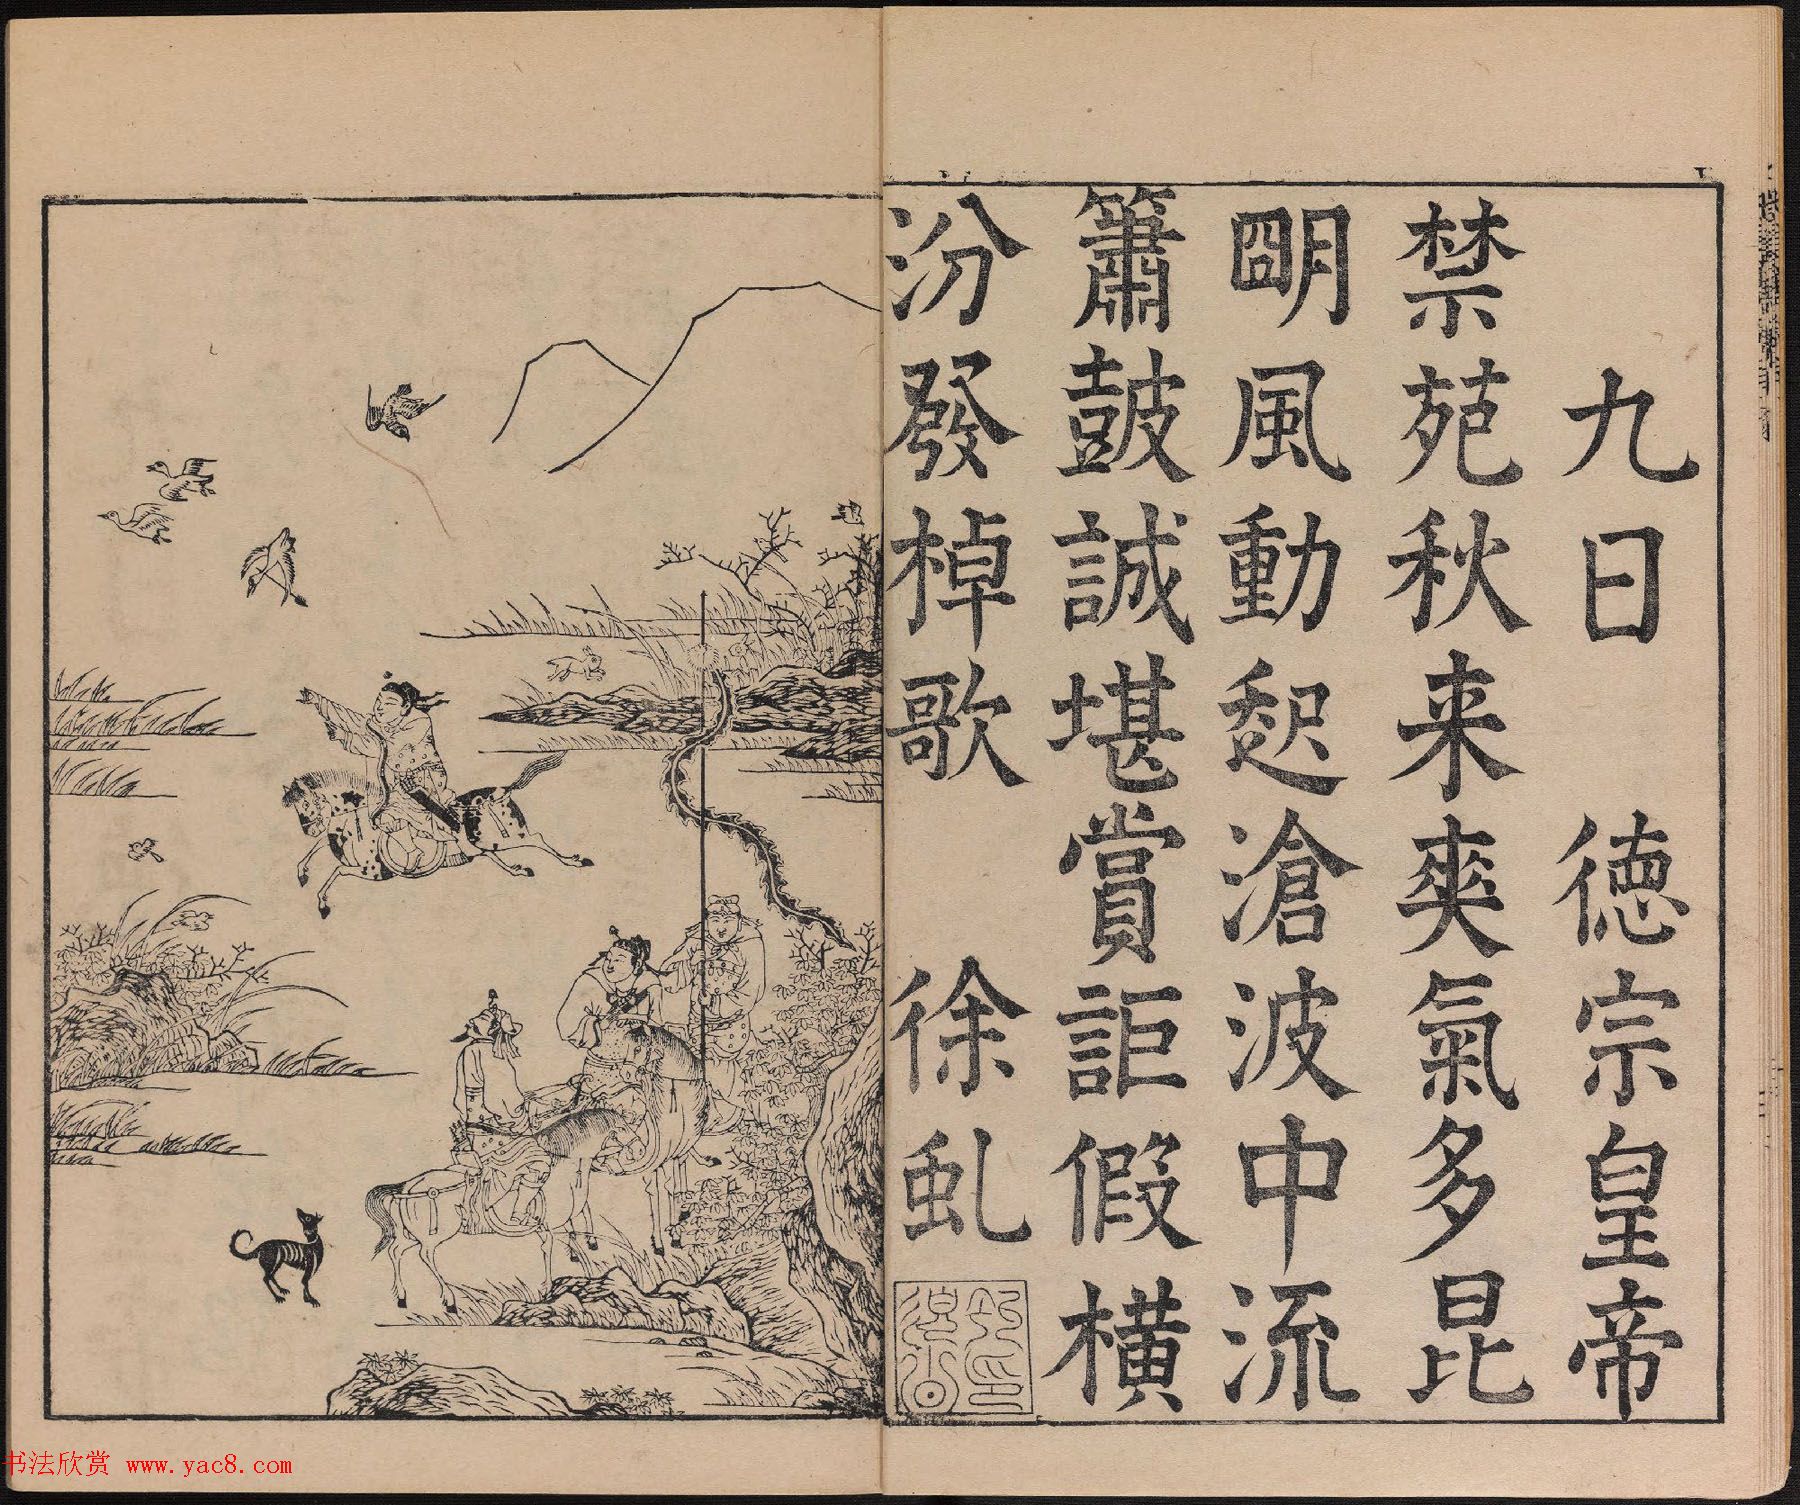 九日　德宗皇帝
禁苑秋来爽氣多昆
明風動起滄波中流
簫鼓誠堪賞詎假横
汾發棹歌　徐虬
书法欣赏 www.yac8.com